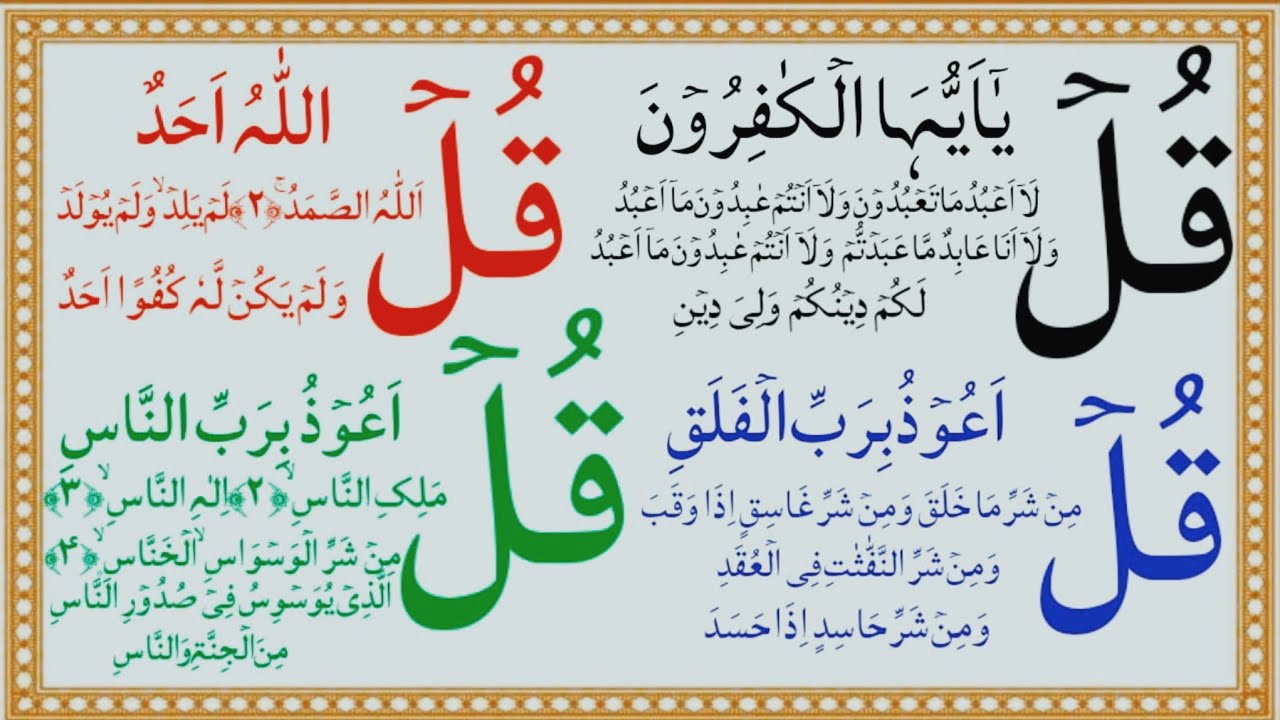 قُلۡ يٰۤاَيُّهَا الۡكٰفِرُوۡنَ
لَاۤ اَعۡبُدُ مَا تَعۡبُدُوۡنَ وَلَاۤ اَنۡتُمۡ عٰبِدُوۡنَ مَاۤ اَعۡبُدُ
وَلَاۤ اَنَا عَابِدٌ مَّا عَبَدۡتُّمۡ وَلَاۤ اَنۡتُمۡ عٰبِدُوۡنَ مَاۤ اَعۡبُدُ
لَكُمۡ دِيۡنُكُمۡ وَلِىَ دِيۡنِ
قُلۡ اللّٰهُ اَحَدٌ
اَللّٰهُ الصَّمَدُ‌ۚ ﴿۲﴾ لَمۡ يَلِدۡ ۙ وَلَمۡ يُوۡلَدۡ
وَلَمۡ يَكُنۡ لَّهٗ كُفُوًا اَحَدٌ
قُلۡ اَعُوۡذُ بِرَبِّ الۡفَلَقِ
مِنۡ شَرِّ مَا خَلَقَ وَمِنۡ شَرِّ غَاسِقٍ اِذَا وَقَبَ
وَمِنۡ شَرِّ النَّفّٰثٰتِ فِى الۡعُقَدِ
وَمِنۡ شَرِّ حَاسِدٍ اِذَا حَسَدَ
قُلۡ اَعُوۡذُ بِرَبِّ النَّاسِ
مَلِكِ النَّاسِۙ ﴿۲﴾ اِلٰهِ النَّاسِۙ ﴿۳﴾
مِنۡ شَرِّ الۡوَسۡوَاسِ ۙ الۡخَنَّاسِۙ ﴿۴﴾
الَّذِىۡ يُوَسۡوِسُ فِىۡ صُدُوۡرِ النَّاسِ
مِنَ الۡجِنَّةِ وَالنَّاسِ